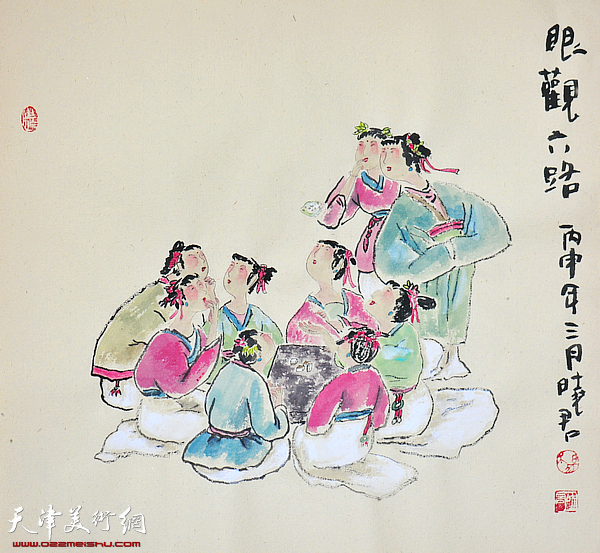 眼觀六路
丙申年三月曉君
天津美術網
www.022meishu.com